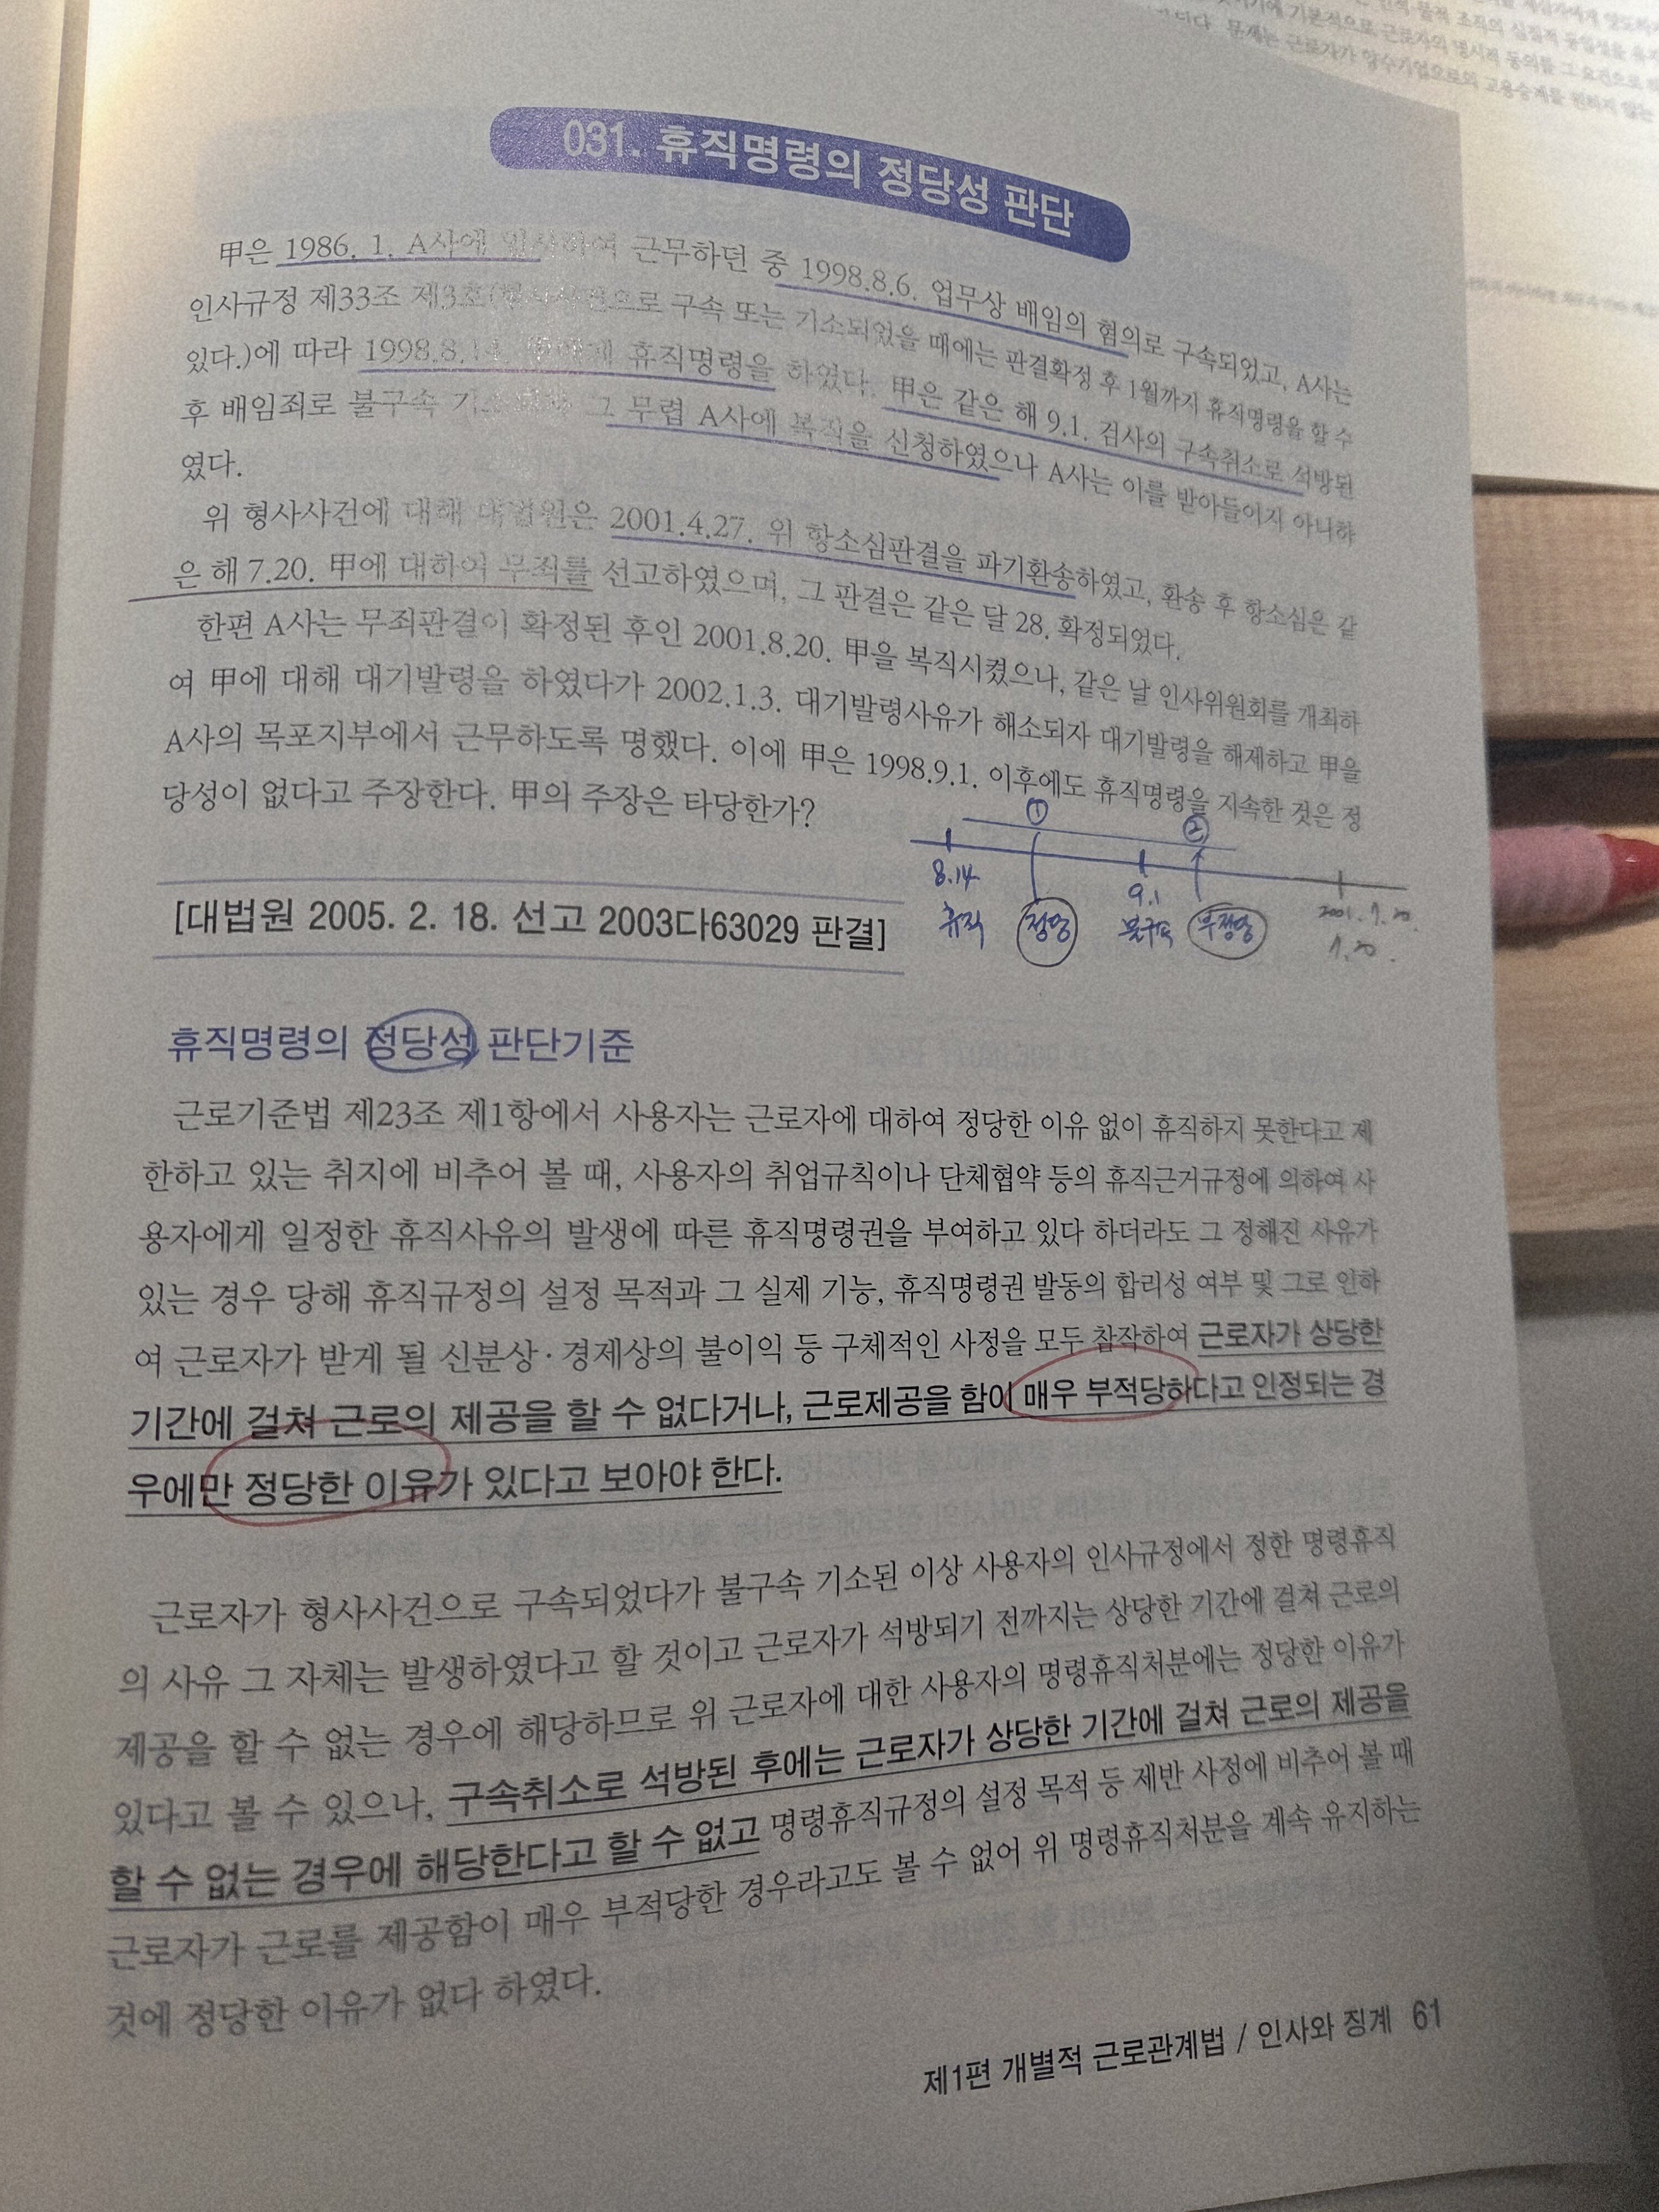 031. 휴직명령의 정당성 판단
甲은 1986. 1. A사에 입사하여 근무하던 중 1998.8.6. 업무상 배임의 혐의로 구속되었고, A사는
인사규정 제33조 제3호(형사사건으로 구속 또는 기소되었을 때에는 판결확정 후 1월까지 휴직명령을 할 수
있다.)에 따라 1998.8.14. 휴직명령을 하였다. 甲은 같은 해 9.1. 검사의 구속취소로 석방된
후 배임죄로 불구속 그 무렵 A사에 복직을 신청하였으나 A사는 이를 받아들이지 아니하
였다.
위 형사사건에 대해 대법원은 2001.4.27. 위 항소심판결을 파기환송하였고, 환송 후 항소심은 같
은 해 7.20. 甲에 대하여 무죄를 선고하였으며, 그 판결은 같은 달 28. 확정되었다.
한편 A사는 무죄판결이 확정된 후인 2001.8.20. 甲을 복직시켰으나, 같은 날 인사위원회를 개최하
여 甲에 대해 대기발령을 하였다가 2002.1.3. 대기발령사유가 해소되자 대기발령을 해제하고 甲을
A사의 목포지부에서 근무하도록 명했다. 이에 甲은 1998.9.1. 이후에도 휴직명령을 지속한 것은 정
당성이 없다고 주장한다. 甲의 주장은 타당한가?
① ②
8.14 9.1 2001. 7. 20.
휴직 정당 불구속 부정당 7.20.
[대법원 2005. 2. 18. 선고 2003다63029 판결]
휴직명령의 정당성 판단기준
근로기준법 제23조 제1항에서 사용자는 근로자에 대하여 정당한 이유 없이 휴직하지 못한다고 제
한하고 있는 취지에 비추어 볼 때, 사용자의 취업규칙이나 단체협약 등의 휴직근거규정에 의하여 사
용자에게 일정한 휴직사유의 발생에 따른 휴직명령권을 부여하고 있다 하더라도 그 정해진 사유가
있는 경우 당해 휴직규정의 설정 목적과 그 실제 기능, 휴직명령권 발동의 합리성 여부 및 그로 인하
여 근로자가 받게 될 신분상·경제상의 불이익 등 구체적인 사정을 모두 참작하여 근로자가 상당한
기간에 걸쳐 근로의 제공을 할 수 없다거나, 근로제공을 함이 매우 부적당하다고 인정되는 경
우에만 정당한 이유가 있다고 보아야 한다.
근로자가 형사사건으로 구속되었다가 불구속 기소된 이상 사용자의 인사규정에서 정한 명령휴직
의 사유 그 자체는 발생하였다고 할 것이고 근로자가 석방되기 전까지는 상당한 기간에 걸쳐 근로의
제공을 할 수 없는 경우에 해당하므로 위 근로자에 대한 사용자의 명령휴직처분에는 정당한 이유가
있다고 볼 수 있으나, 구속취소로 석방된 후에는 근로자가 상당한 기간에 걸쳐 근로의 제공을
할 수 없는 경우에 해당한다고 할 수 없고 명령휴직규정의 설정 목적 등 제반 사정에 비추어 볼 때
근로자가 근로를 제공함이 매우 부적당한 경우라고도 볼 수 없어 위 명령휴직처분을 계속 유지하는
것에 정당한 이유가 없다 하였다.
제1편 개별적 근로관계법 / 인사와 징계 61